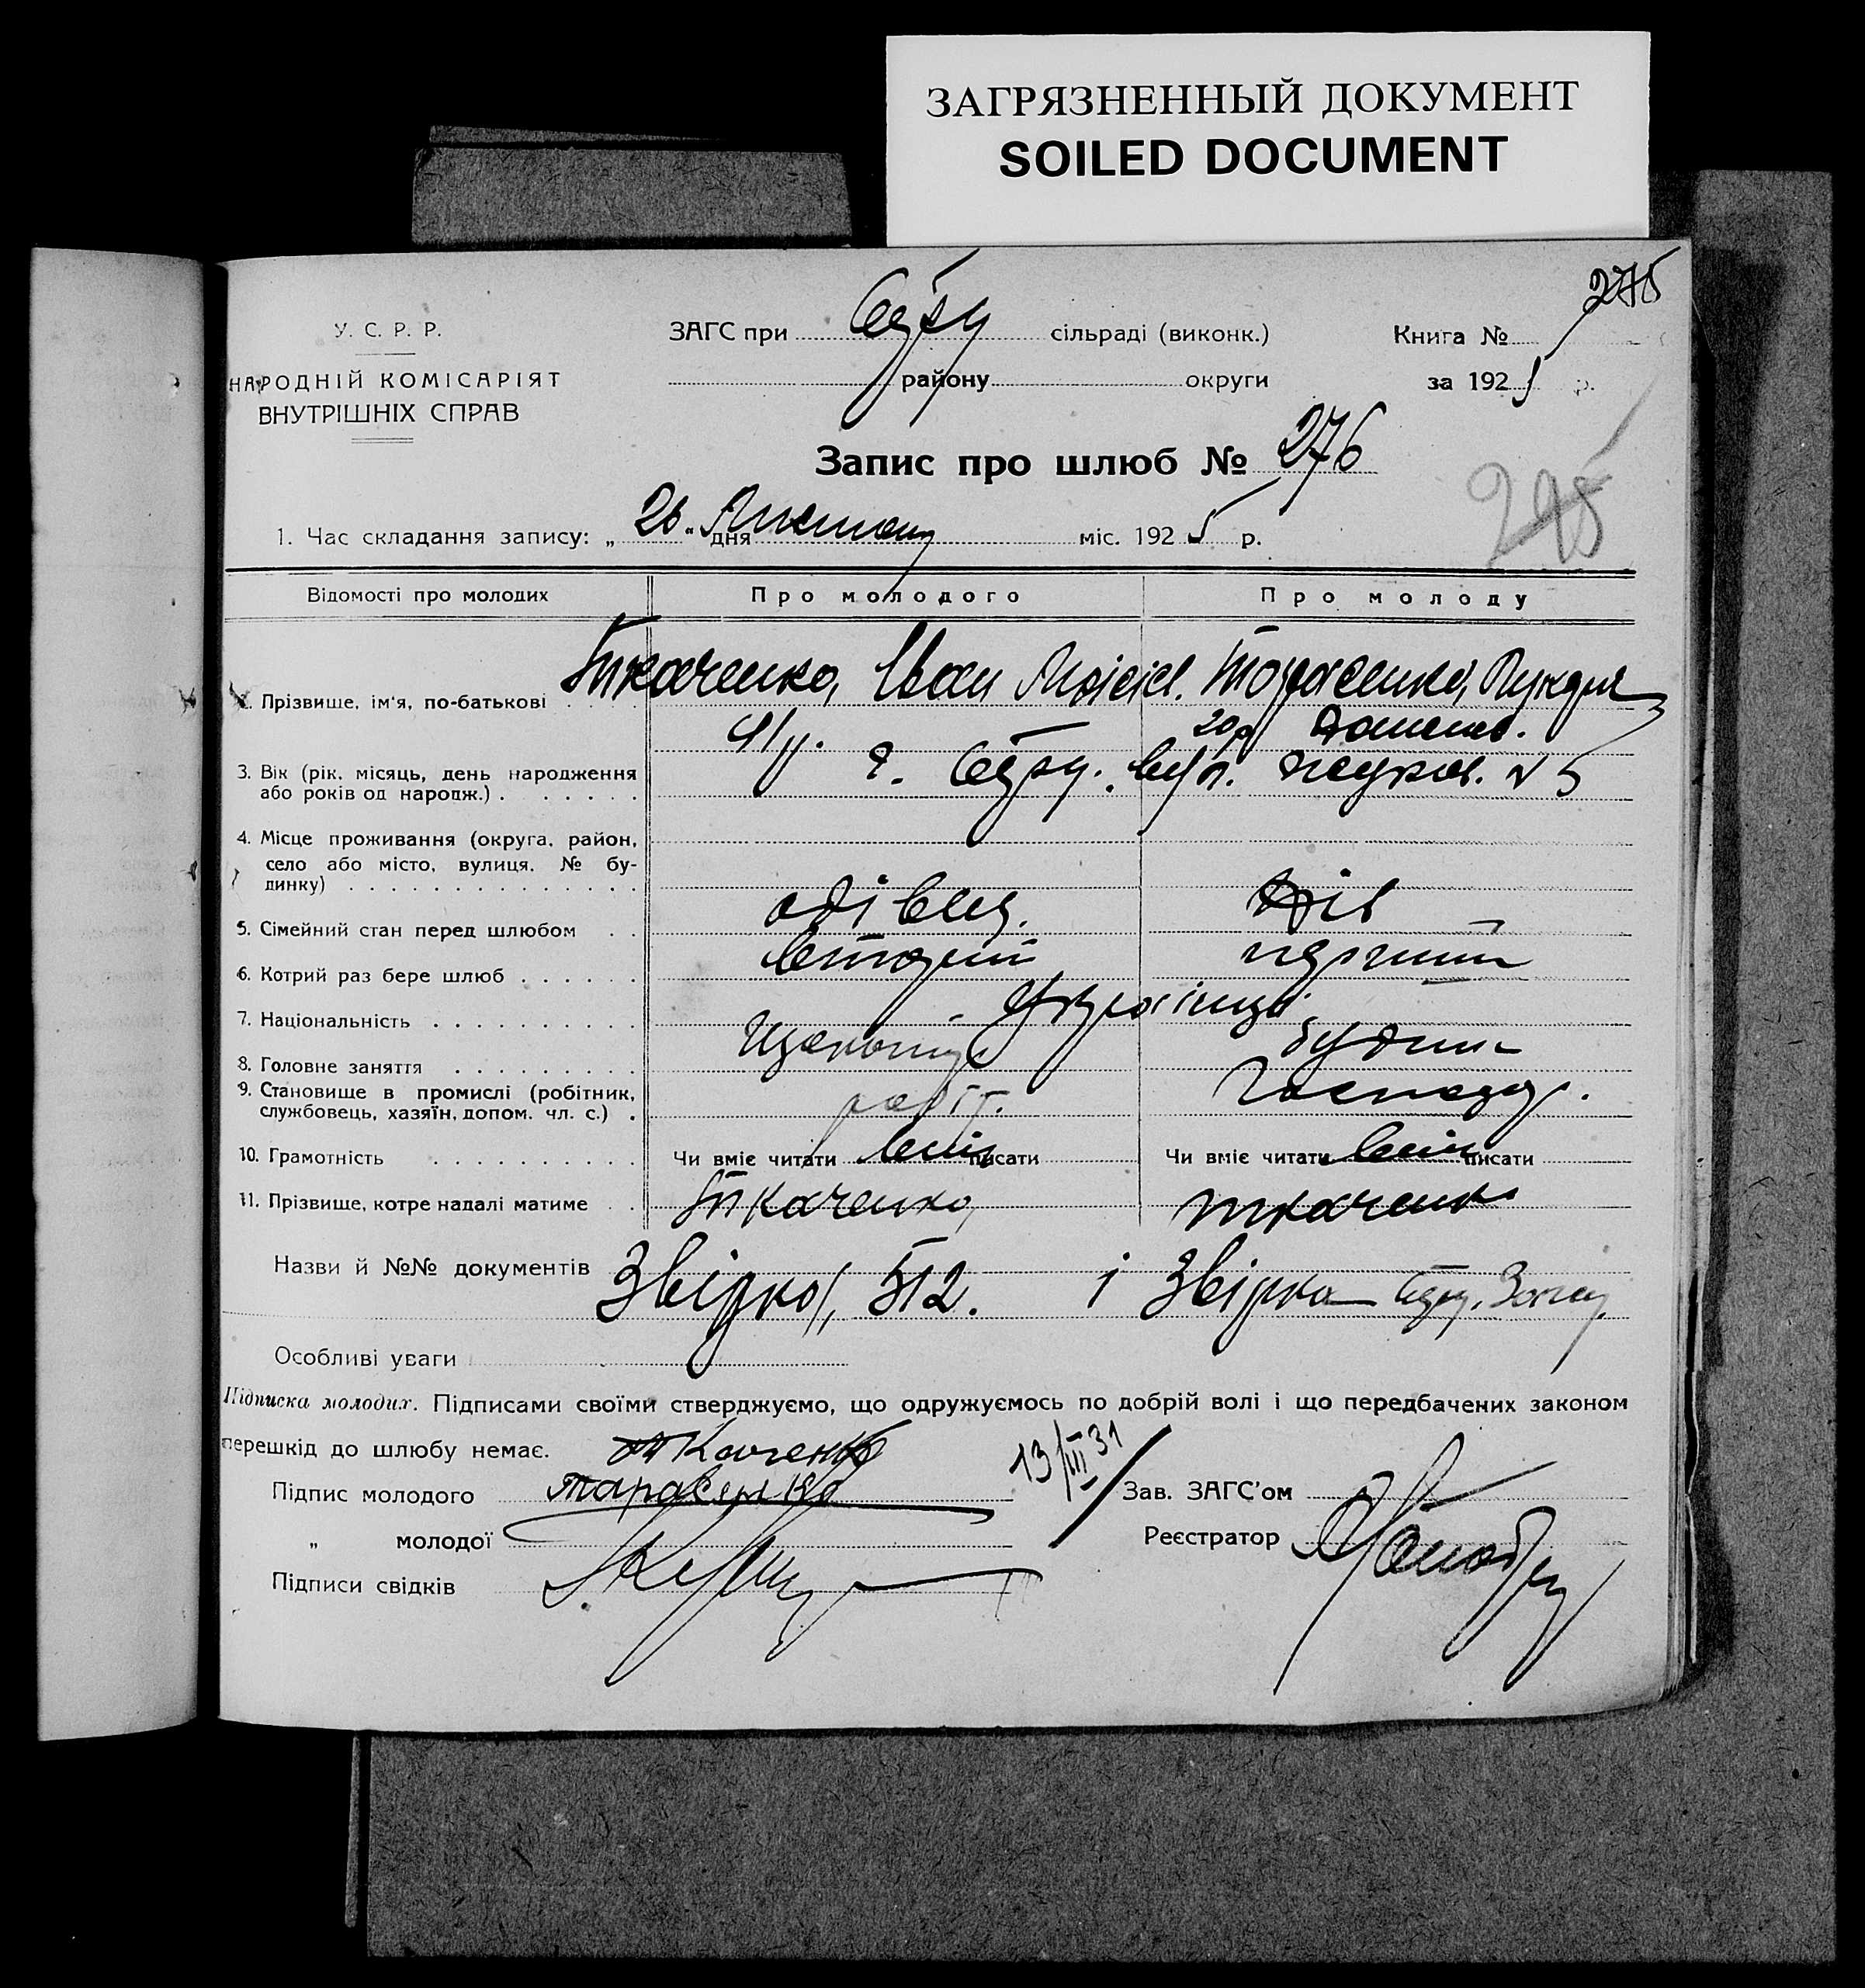 ЗАГРЯЗНЕННЫЙ ДОКУМЕНТ
SOILED DOCUMENT
275
У. С. Р. Р.
НАРОДНІЙ КОМІСАРІЯТ
ВНУТРІШНІХ СПРАВ
ЗАГС при сільраді (виконк.)
району округи
Книга №
за 1925 р.
Запис про шлюб № 276
295
1. Час складання запису: „26“ дня міс. 1925 р.
Відомості про молодих Про молодого Про молоду
2. Прізвище, ім'я, по-батькові Ткаченко, Іван Мойсієв. Тарасенко,
3. Вік (рік, місяць, день народження
або років од народж.)
41 р. 20 р
4. Місце проживання (округа, район,
село або місто, вулиця, № бу-
динку)
вул. № 5
5. Сімейний стан перед шлюбом удівец. дів
6. Котрий раз бере шлюб вторий перший
7. Національність українці
8. Головне заняття
9. Становище в промислі (робітник,
службовець, хазяїн, допом. чл. с.)
робіт. господар.
10. Грамотність Чи вміє читати вміє писати Чи вміє читати вміє писати
11. Прізвище, котре надалі матиме Ткаченко, Ткаченко
Назви й №№ документів Звірка, 512. і Звірка
Особливі уваги
Підписка молодих. Підписами своїми стверджуємо, що одружуємось по добрій волі і що передбачених законом
перешкід до шлюбу немає. Ткаченко
13/III 31
Підпис молодого Тарасенко Зав. ЗАГС'ом
„ молодої Реєстратор
Підписи свідків